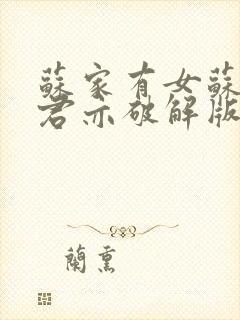 蘇家有女蘇
君亦破解版
蘭熏